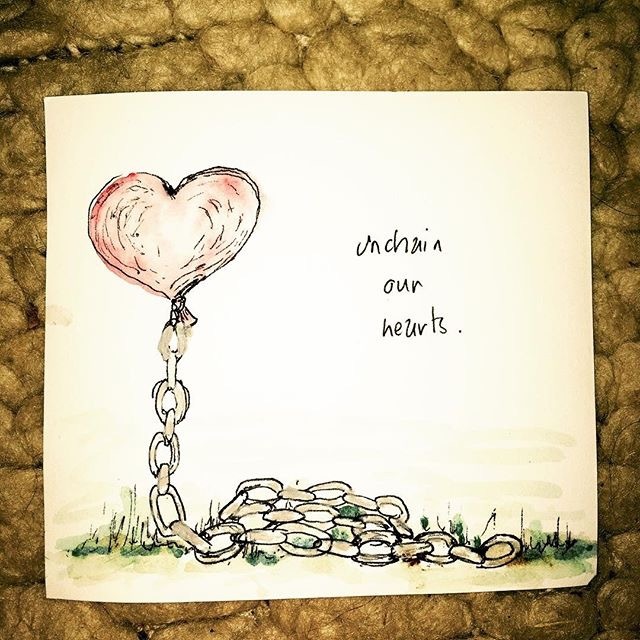 unchain
our
hearts.